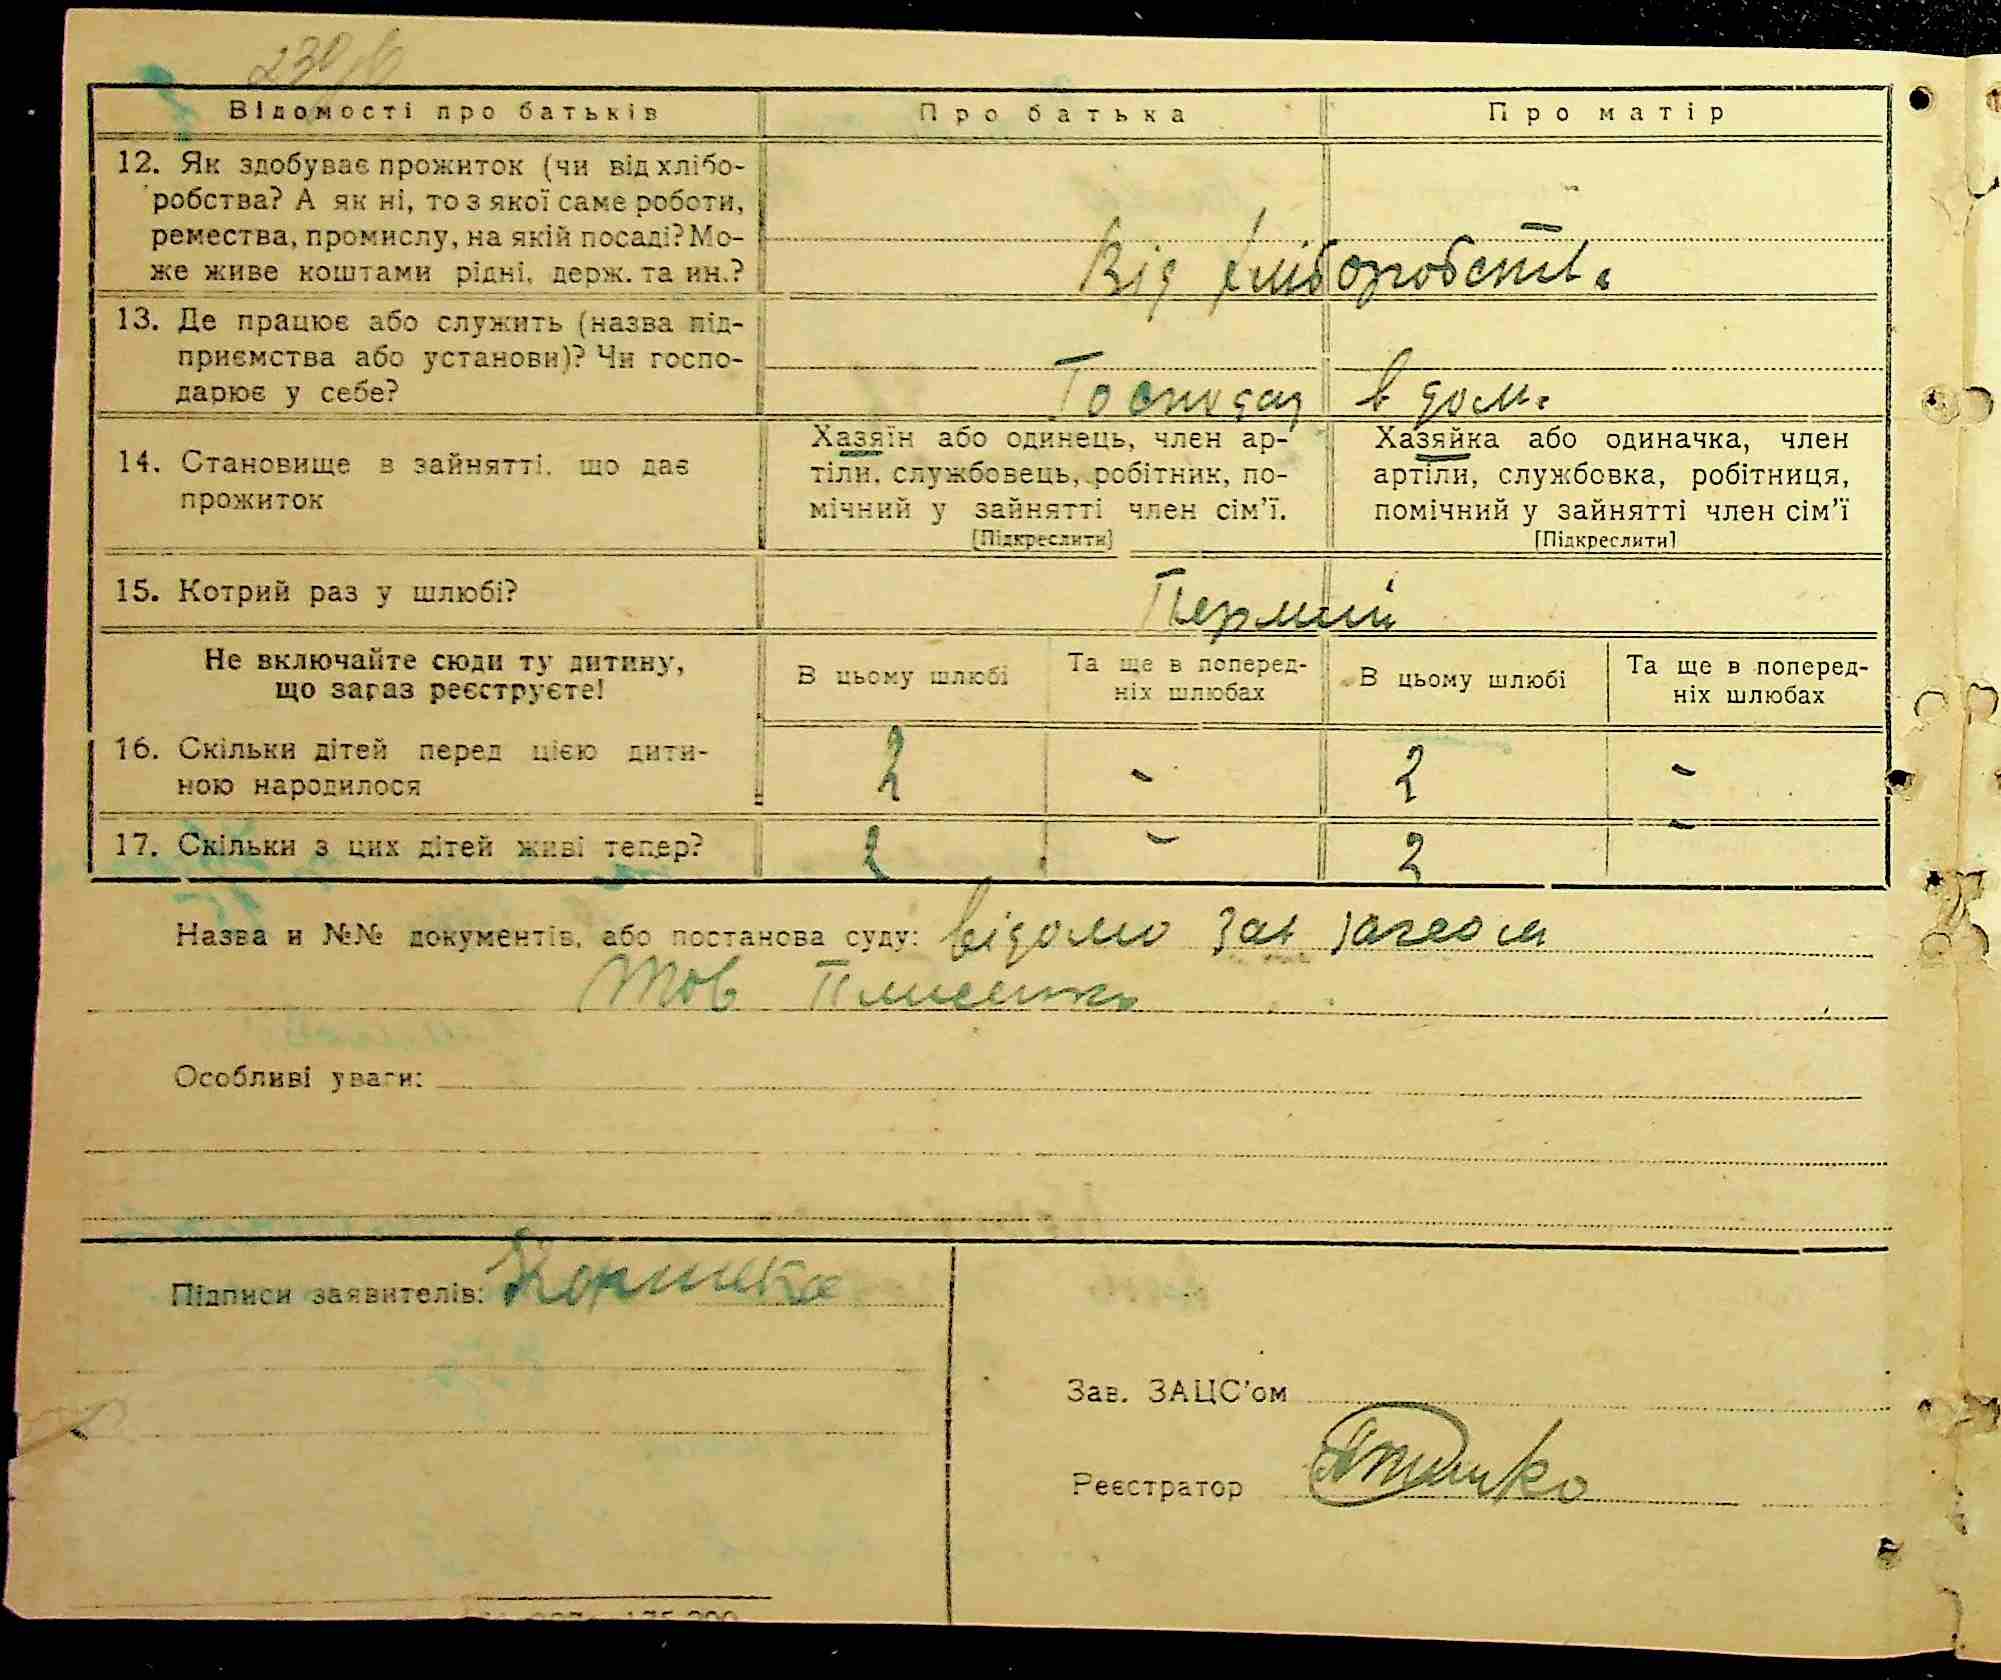 Відомості про батьків
Про батька
Про матір
12. Як здобуває прожиток (чи від хлібо-
робства? А як ні, то з якої саме роботи,
ремества, промислу, на якій посаді? Мо-
же живе коштами рідні, держ. та ин.?
Від хліборобств.
13. Де працює або служить (назва під-
приємства або установи)? Чи госпо-
дарює у себе?
Господар в дом.
14. Становище в зайнятті, що дає
прожиток
Хазяїн або одинець, член ар-
тіли, службовець, робітник, по-
мічний у зайнятті член сім'ї.
[Підкреслити]
Хазяйка або одиначка, член
артіли, службовка, робітниця,
помічний у зайнятті член сім'ї
[Підкреслити]
15. Котрий раз у шлюбі?
Перший
Не включайте сюди ту дитину,
що зараз реєструєте!
В цьому шлюбі
Та ще в поперед-
ніх шлюбах
В цьому шлюбі
Та ще в поперед-
ніх шлюбах
16. Скільки дітей перед цією дити-
ною народилося
2 - 2 -
17. Скільки з цих дітей живі тепер?
2 - 2 -
Назва и №№ документів, або постанова суду: відомо зав
тов
Особливі уваги:
Підписи заявителів:
Зав. ЗАЦС'ом
Реєстратор